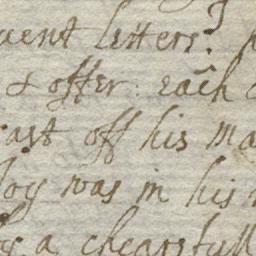 cent letters?
& offer: each
cast off his ma
Joy was in his
a chearfull